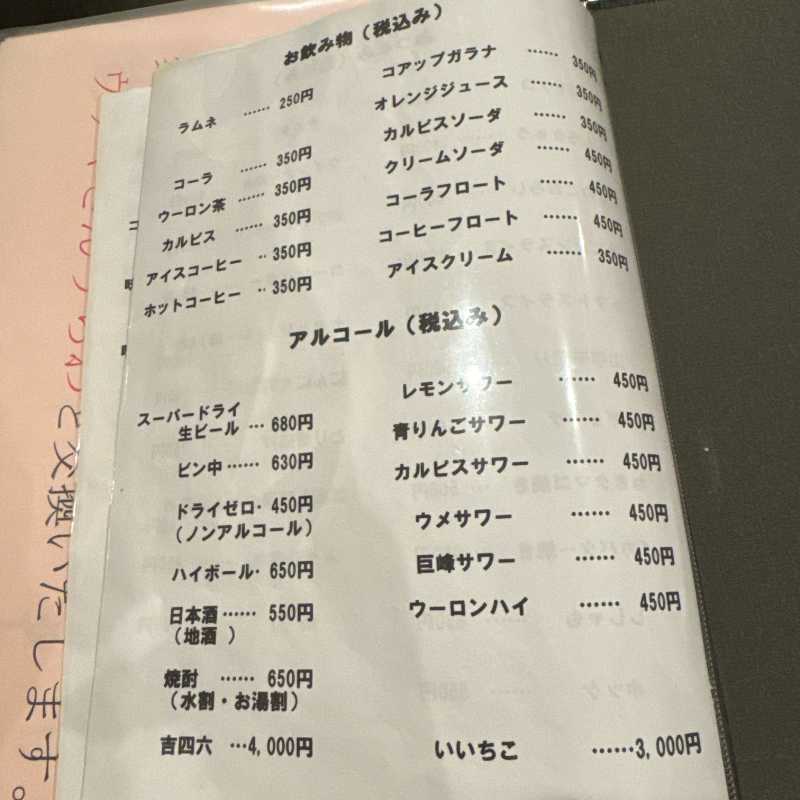 お飲み物（税込み）
ラムネ …… 250円
コーラ …… 350円
ウーロン茶 …… 350円
カルピス …… 350円
アイスコーヒー ‥ 350円
ホットコーヒー ‥ 350円
コアップガラナ …… 350円
オレンジジュース …… 350円
カルピスソーダ …… 350円
クリームソーダ …… 450円
コーラフロート …… 450円
コーヒーフロート …… 450円
アイスクリーム …… 350円
アルコール（税込み）
スーパードライ
生ビール … 680円
ビン中 …… 630円
ドライゼロ・ 450円
（ノンアルコール）
ハイボール・ 650円
日本酒 …… 550円
（地酒 ）
焼酎 …… 650円
（水割・お湯割）
吉四六 …4,000円
レモンサワー …… 450円
青りんごサワー …… 450円
カルピスサワー …… 450円
ウメサワー …… 450円
巨峰サワー …… 450円
ウーロンハイ …… 450円
いいちこ ……3,000円
と交換いたします。